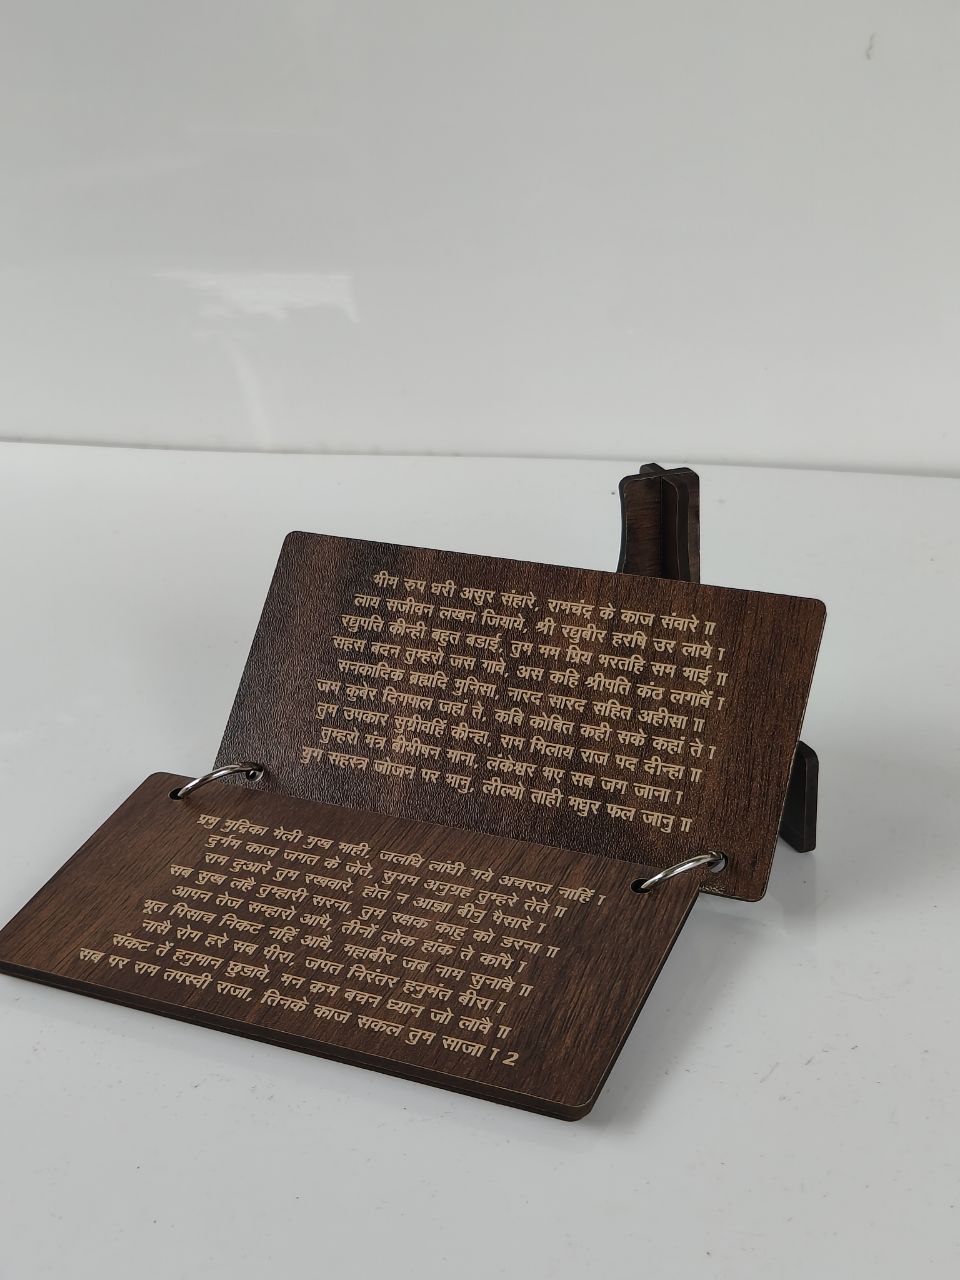 भीम रुप धरी असुर संहारे, रामचंद्र के काज संवारे ॥
लाय सजीवन लखन जियाये, श्री रघुबीर हरषि उर लाये ।
रघुपति कीन्ही बहुत बडाई, तुम मम प्रिय भरतहि सम भाई ॥
सहस बदन तुम्हरो जस गावे, अस कहि श्रीपति कंठ लगावैं ।
सनकादिक ब्रह्मादि मुनिसा, नारद सारद सहित अहीसा ॥
जम कुबेर दिगपाल जहां ते, कबि कोबिद कही सके कहां ते ।
तुम उपकार सुग्रीवहिं कीन्हा, राम मिलाय राज पद दीन्हा ॥
तुम्हरो मंत्र बीभीषन माना, लंकेश्वर भए सब जग जाना ।
युग सहस्त्र जोजन पर भानु, लील्यो ताही मधुर फल जानु ॥
प्रभु मुद्रिका मेली मुख माही, जलधि लांघी गये अचरज नाहिं ।
दुर्गम काज जगत के जेते, सुगम अनुग्रह तुम्हरे तेते ॥
राम दुआरे तुम रखवारे, होत न आज्ञा बीनु पैसारे ।
सब सुख लहै तुम्हारी सरना, तुम रक्षक काहु को डरना ॥
आपन तेज सम्हारो आपै, तीनों लोक हांक ते कांपै ।
भूत पिसाच निकट नहिं आवै, महाबीर जब नाम सुनावै ॥
नासै रोग हरे सब पीरा, जपत निरंतर हनुमंत बीरा ।
संकट तें हनुमान छुडावे, मन क्रम बचन ध्यान जो लावै ॥
सब पर राम तपस्वी राजा, तिनके काज सकल तुम साजा । 2